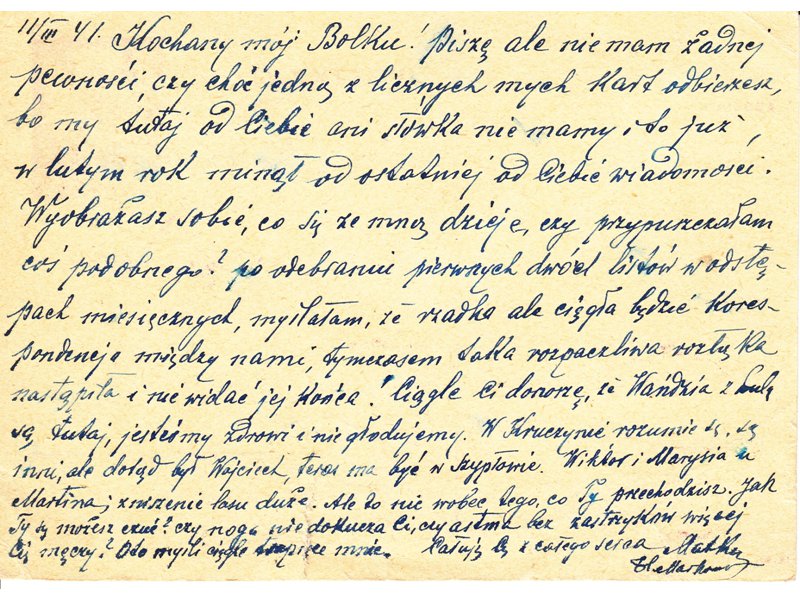 11/III 41. Kochany mój Bolku! Piszę ale nie mam żadnej
pewności, czy choć jedną z licznych mych kart odbierzesz,
bo my tutaj od Ciebie ani słówka nie mamy i to już,
w lutym rok minął od ostatniej od Ciebie wiadomości.
Wyobrażasz sobie, co się ze mną dzieje, czy przypuszczałam
coś podobnego? po odebraniu pierwszych dwóch listów w odstę-
pach miesięcznych, myślałam, że rzadka ale ciągła będzie kores-
pondencja między nami, tymczasem taka rozpaczliwa rozłąka
nastąpiła i nie widać jej końca! Ciągle Ci donoszę, że Wańdzia z
są tutaj, jesteśmy zdrowi i nie głodujemy. W Kruczynie rozumie się, są
inni, ale dotąd był Wojciech, teraz ma być w Szypłowie. Wiktor i Marysia u
Marcina; zniszczenie lasu duże. Ale to nic wobec tego, co Ty przechodzisz. Jak
Ty się możesz czuć? czy noga nie dokucza Ci, czy astma bez zastrzyków więcej
Cię męczy? Oto myśli ciągle trapiące mnie. Całuję Cię z całego serca Matka